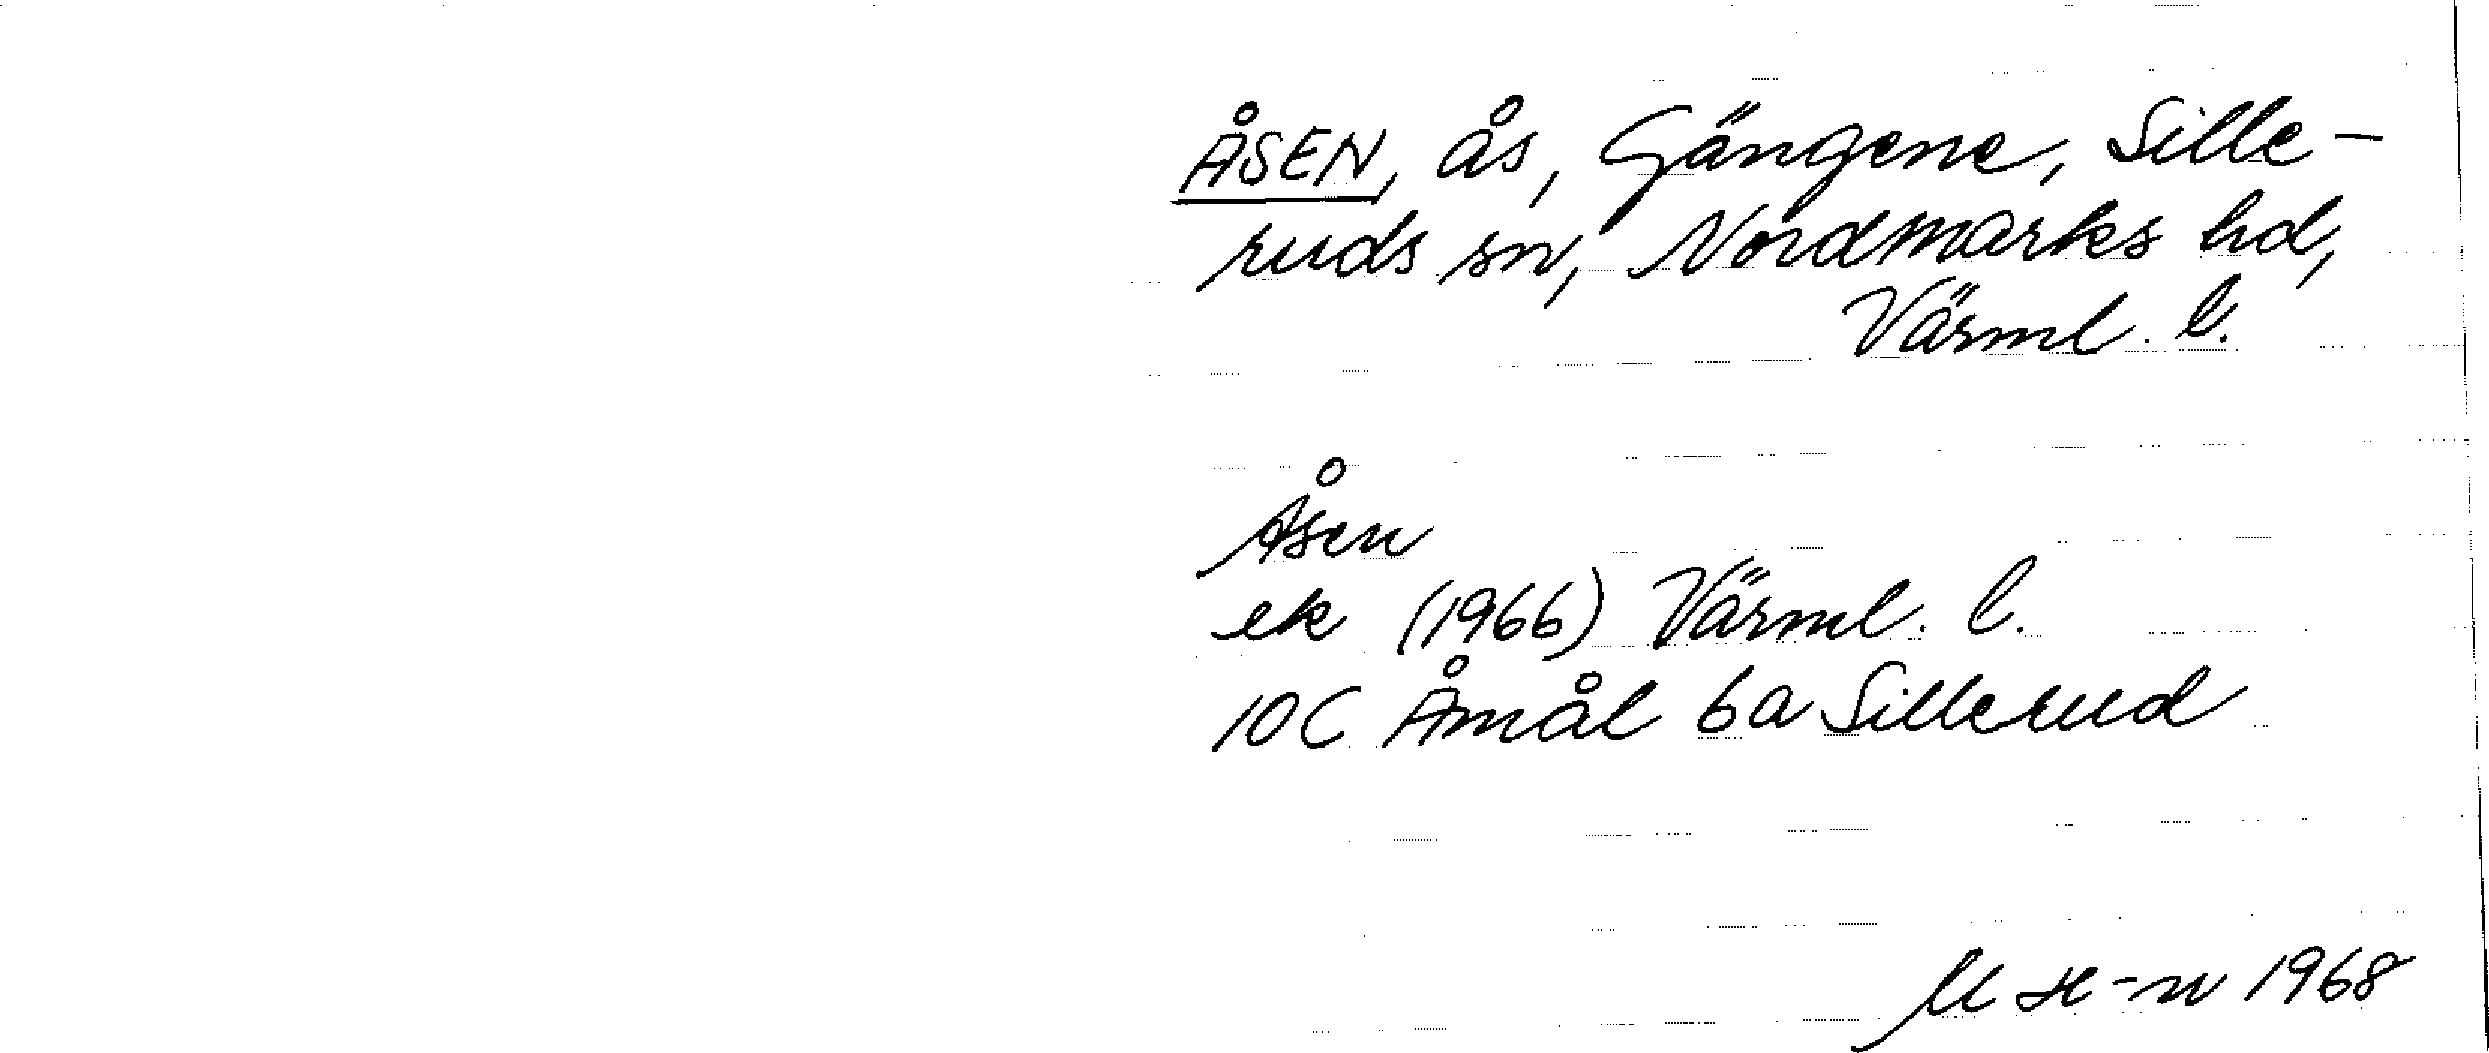 ÅSEN, ås, Gängene, Sille-
ruds sn, Nordmarks hd,
Värml. l.
Åsen
ek (1966) Värml. l.
10C Åmål 6a Sillerud
M H-n 1968